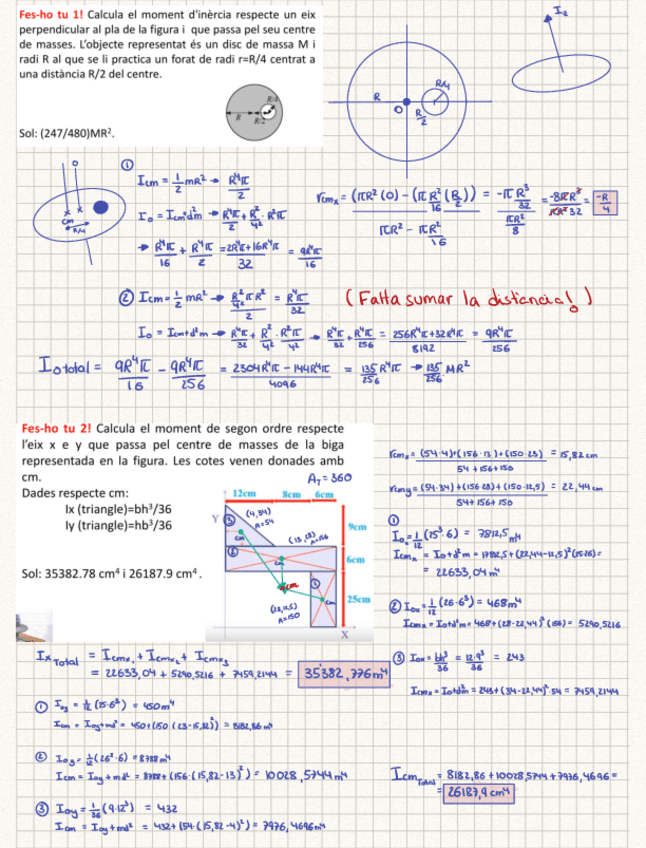 Fes-ho tu 1! Calcula el moment d'inèrcia respecte un eix
perpendicular al pla de la figura i que passa pel seu centre
de masses. L'objecte representat és un disc de massa M i
radi R al que se li practica un forat de radi r=R/4 centrat a
una distància R/2 del centre.
Sol: (247/480)MR².
R
R/2
R/4
R
O
R/4
R/2
I₂
①
Icm = 1/2 mR² → R⁴π/2
→ R⁴π/16 + R⁴π/2 = 2R⁴π+16R⁴π/32 = 9R⁴π/16
rcmₓ = (πR²(0) - (πR²/16 (R/2)) / πR² - πR²/16 = -πR³/32 / πR²/8 = -8πR³/πR² 32 = -R/4
cm
R/4
② Icm = 1/2 mR² → R²/4² πR²/2 = R⁴π/32
(Falta sumar la distancia!)
I₀ = Icm+d²m → R⁴π/32 + R²/4² · R²π/4² → R⁴π/32 + R⁴π/256 = 256R⁴π+32R⁴π/8192 = 9R⁴π/256
I₀ total = 9R⁴π/16 - 9R⁴π/256 = 2304R⁴π - 144R⁴π/4096 = 135/256 R⁴π → 135/256 MR²
Fes-ho tu 2! Calcula el moment de segon ordre respecte
l'eix x e y que passa pel centre de masses de la biga
representada en la figura. Les cotes venen donades amb
cm.
A_T = 360
Dades respecte cm:
Ix (triangle)=bh³/36
Iy (triangle)=hb³/36
Sol: 35382.78 cm⁴ i 26187.9 cm⁴.
12cm 8cm 6cm
Y
(4,34)
A=54
9cm
(13,28) A=156
6cm
cm
(23,12,5)
A=150
25cm
X
rcmₓ = (54·4)+(156·13)+(150·23) / 54+156+150 = 15,82 cm
rcmy = (54·34)+(156·28)+(150·12,5) / 54+156+150 = 22,44 cm
①
I₀ = 1/12 (25³·6) = 7812,5 m⁴
= 22633,04 m⁴
② I₀ₓ = 1/12 (26·6³) = 468 m⁴
Icmₓ = I₀+d²m = 468+(28-22,44)²(156) = 5290,5216
③ I₀ₓ = bh³/36 = 12·9³/36 = 243
Icmₓ = I₀+d²m = 243+(34-22,44)²·54 = 7459,2144
Iₓ Total = Icmₓ₁ + Icmₓ₂ + Icmₓ₃
= 22633,04 + 5290,5216 + 7459,2144 = 35'382,776 m⁴
① I₀y = 1/12 (25·6³) = 450 m⁴
Icm = I₀y+md² = 450+(150 (23-15,82)²) = 8182,86 m⁴
② I₀y = 1/12 (26³·6) = 8788 m⁴
Icm = I₀y + md² = 8788 + (156·(15,82-13)²) = 10028,5744 m⁴
③ I₀y = 1/36 (9·12³) = 432
Icm = I₀y + md² = 432+(54·(15,82-4)²) = 7976,4696 m⁴
Icm Total = 8182,86 + 10028,5744 + 7976,4696 =
= 26187,9 cm⁴